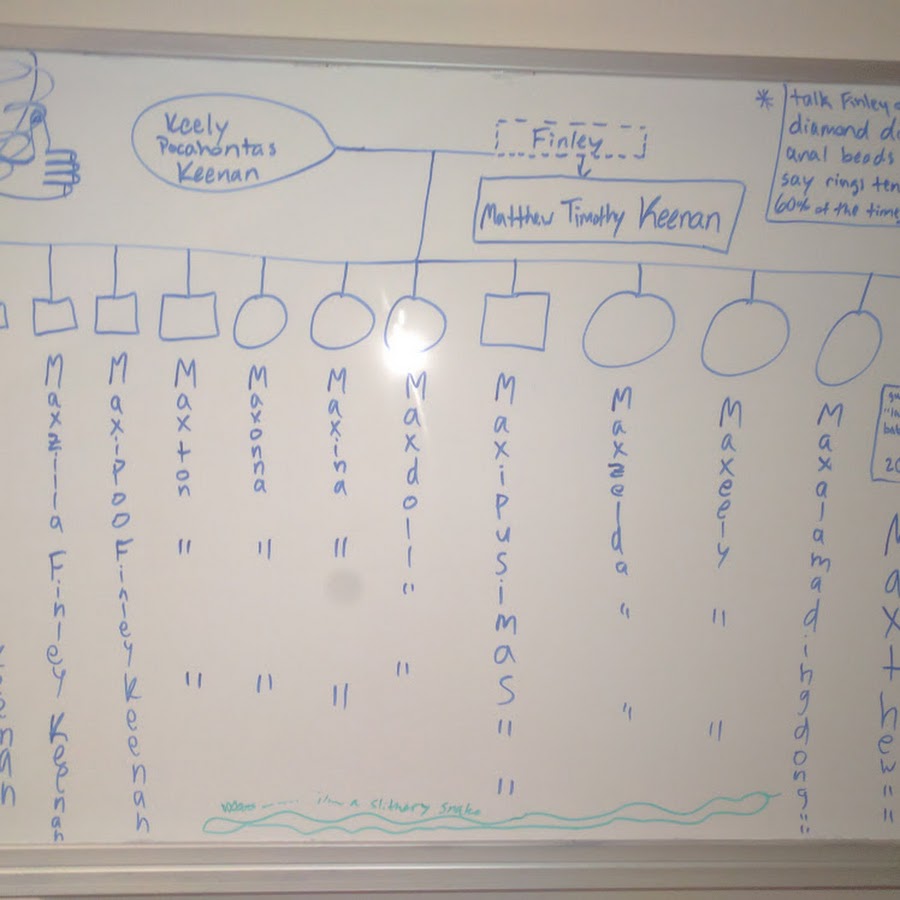 Keely
Pocahontas
Keenan
Finley
Matthew Timothy Keenan
* talk Finley
diamond
anal beads
say rings
60% of the time
Maxzilla Finley Keenan
Maxipoo Finley Keenan
Maxton " "
Maxonna " "
Maxina " "
Maxdoll " "
Maxipusimas " "
Maxzelda " "
Maxeely " "
Maxalamadingdong " "
Maxthew " "
i'm a slithery snake